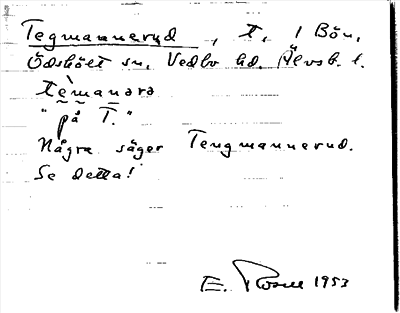 Tegmannerud, t, i Bön,
Ödsköлt sn, Vedbo hd. Älvsb. l.
tèmanərə
"på T."
Några säger Tengmannerud.
Se detta!
E. Rosell 1953